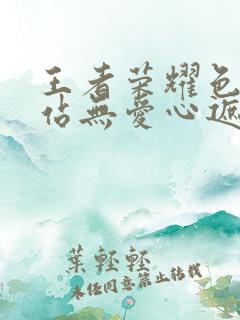 王者荣耀色
估無愛心遮
葉輕輕
未经同意禁止转载